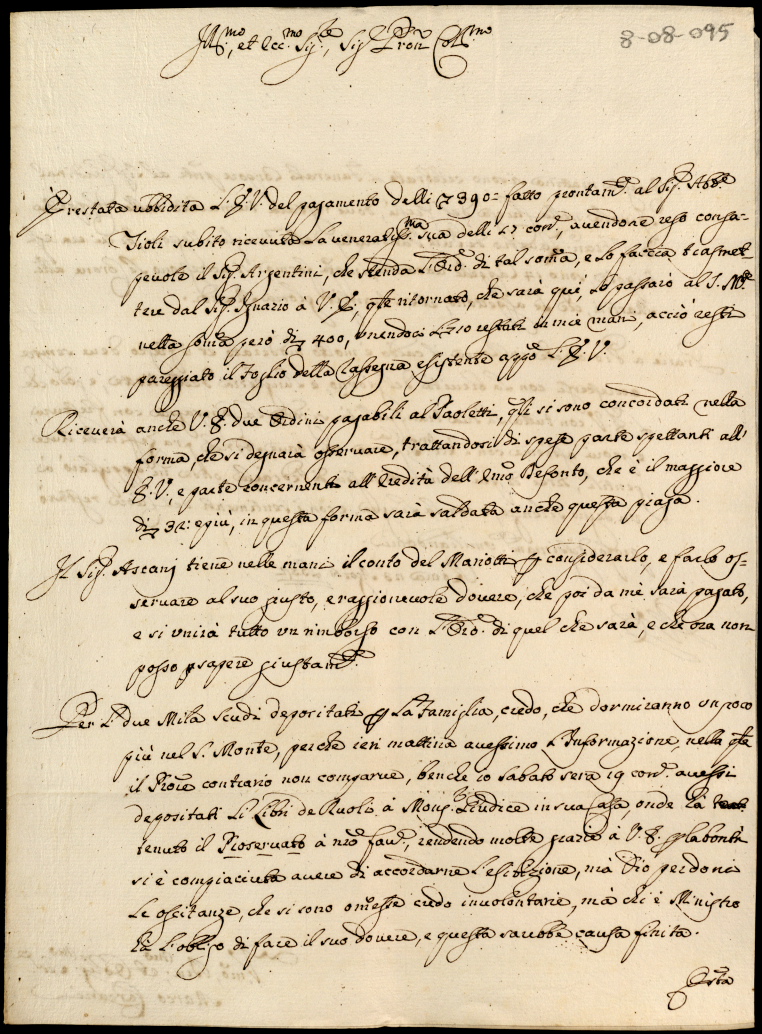 8-08-095
Ill.mo, et Ecc.mo Sig.re, Sig.r Pron Col.mo
Prestata ubbidita L.E.V. del pagamento delli 390= fatto prontam.e al Sig.r Abb.e
Tioli subito ricevuta La veneratis.ma sua delli 17 cor.e, avendone reso consa-
pevole il Sig.r Argentini, che stenda L'Ord.e di tal som̃a, e Lo faccia trasmet
tere dal Sig.r Ignazio à V.E., q̃le ritornato, che sarà quì, Lo passarò al S. M.te
nella som̃a però di 400, unendoci Li 10 restati in mie mani, acciò resti
pareggiato il Foglio della Rassegna esistente app.o L.E.V.
Riceverà anche V.E. due Ordini pagabili al Paoletti, q̃li si sono concordati nella
forma, che si degnarà osservare, trattandosi di spese parte spettanti all'
E.V., e parte concernenti all'Eredità dell' Em̃o Defonto, che è il maggiore
di 32: e più, in questa forma sarà saldata anche questa piaga.
Il Sig.r Ascanj tiene nelle mani il conto del Mariotti p considerarlo, e farlo os-
servare al suo giusto, e raggionevole dovere, che poi da mè sarà pagato,
e si unirà tutto un rimborso con L'Ord.e di quel che sarà, e che ora non
posso sapere giustam.e
Per Li due Mila scudi depositati p La Famiglia, credo, che dormiranno un poco
più nel S. Monte, perche ieri mattina avessimo L'Informazione, nella q̃le
il Proc̃e contrario non comparve, benche io sabato sera 19 cor.e avessi
depositati Li Libri de Ruoli à Mons.r Giudice in sua Casa, onde hà
tenuto il Rioservato à n̄ro fav.e, rendendo molte grazie à V.E. p la bontà
si è compiaciuta avere di accordarne L'esibizione, mà Dio perdoni
Le oscitanze, che si sono om̃esse credo involontarie, mà chi è Ministro
hà L'obligo di fare il suo dovere, e questa sarebbe causa finita.